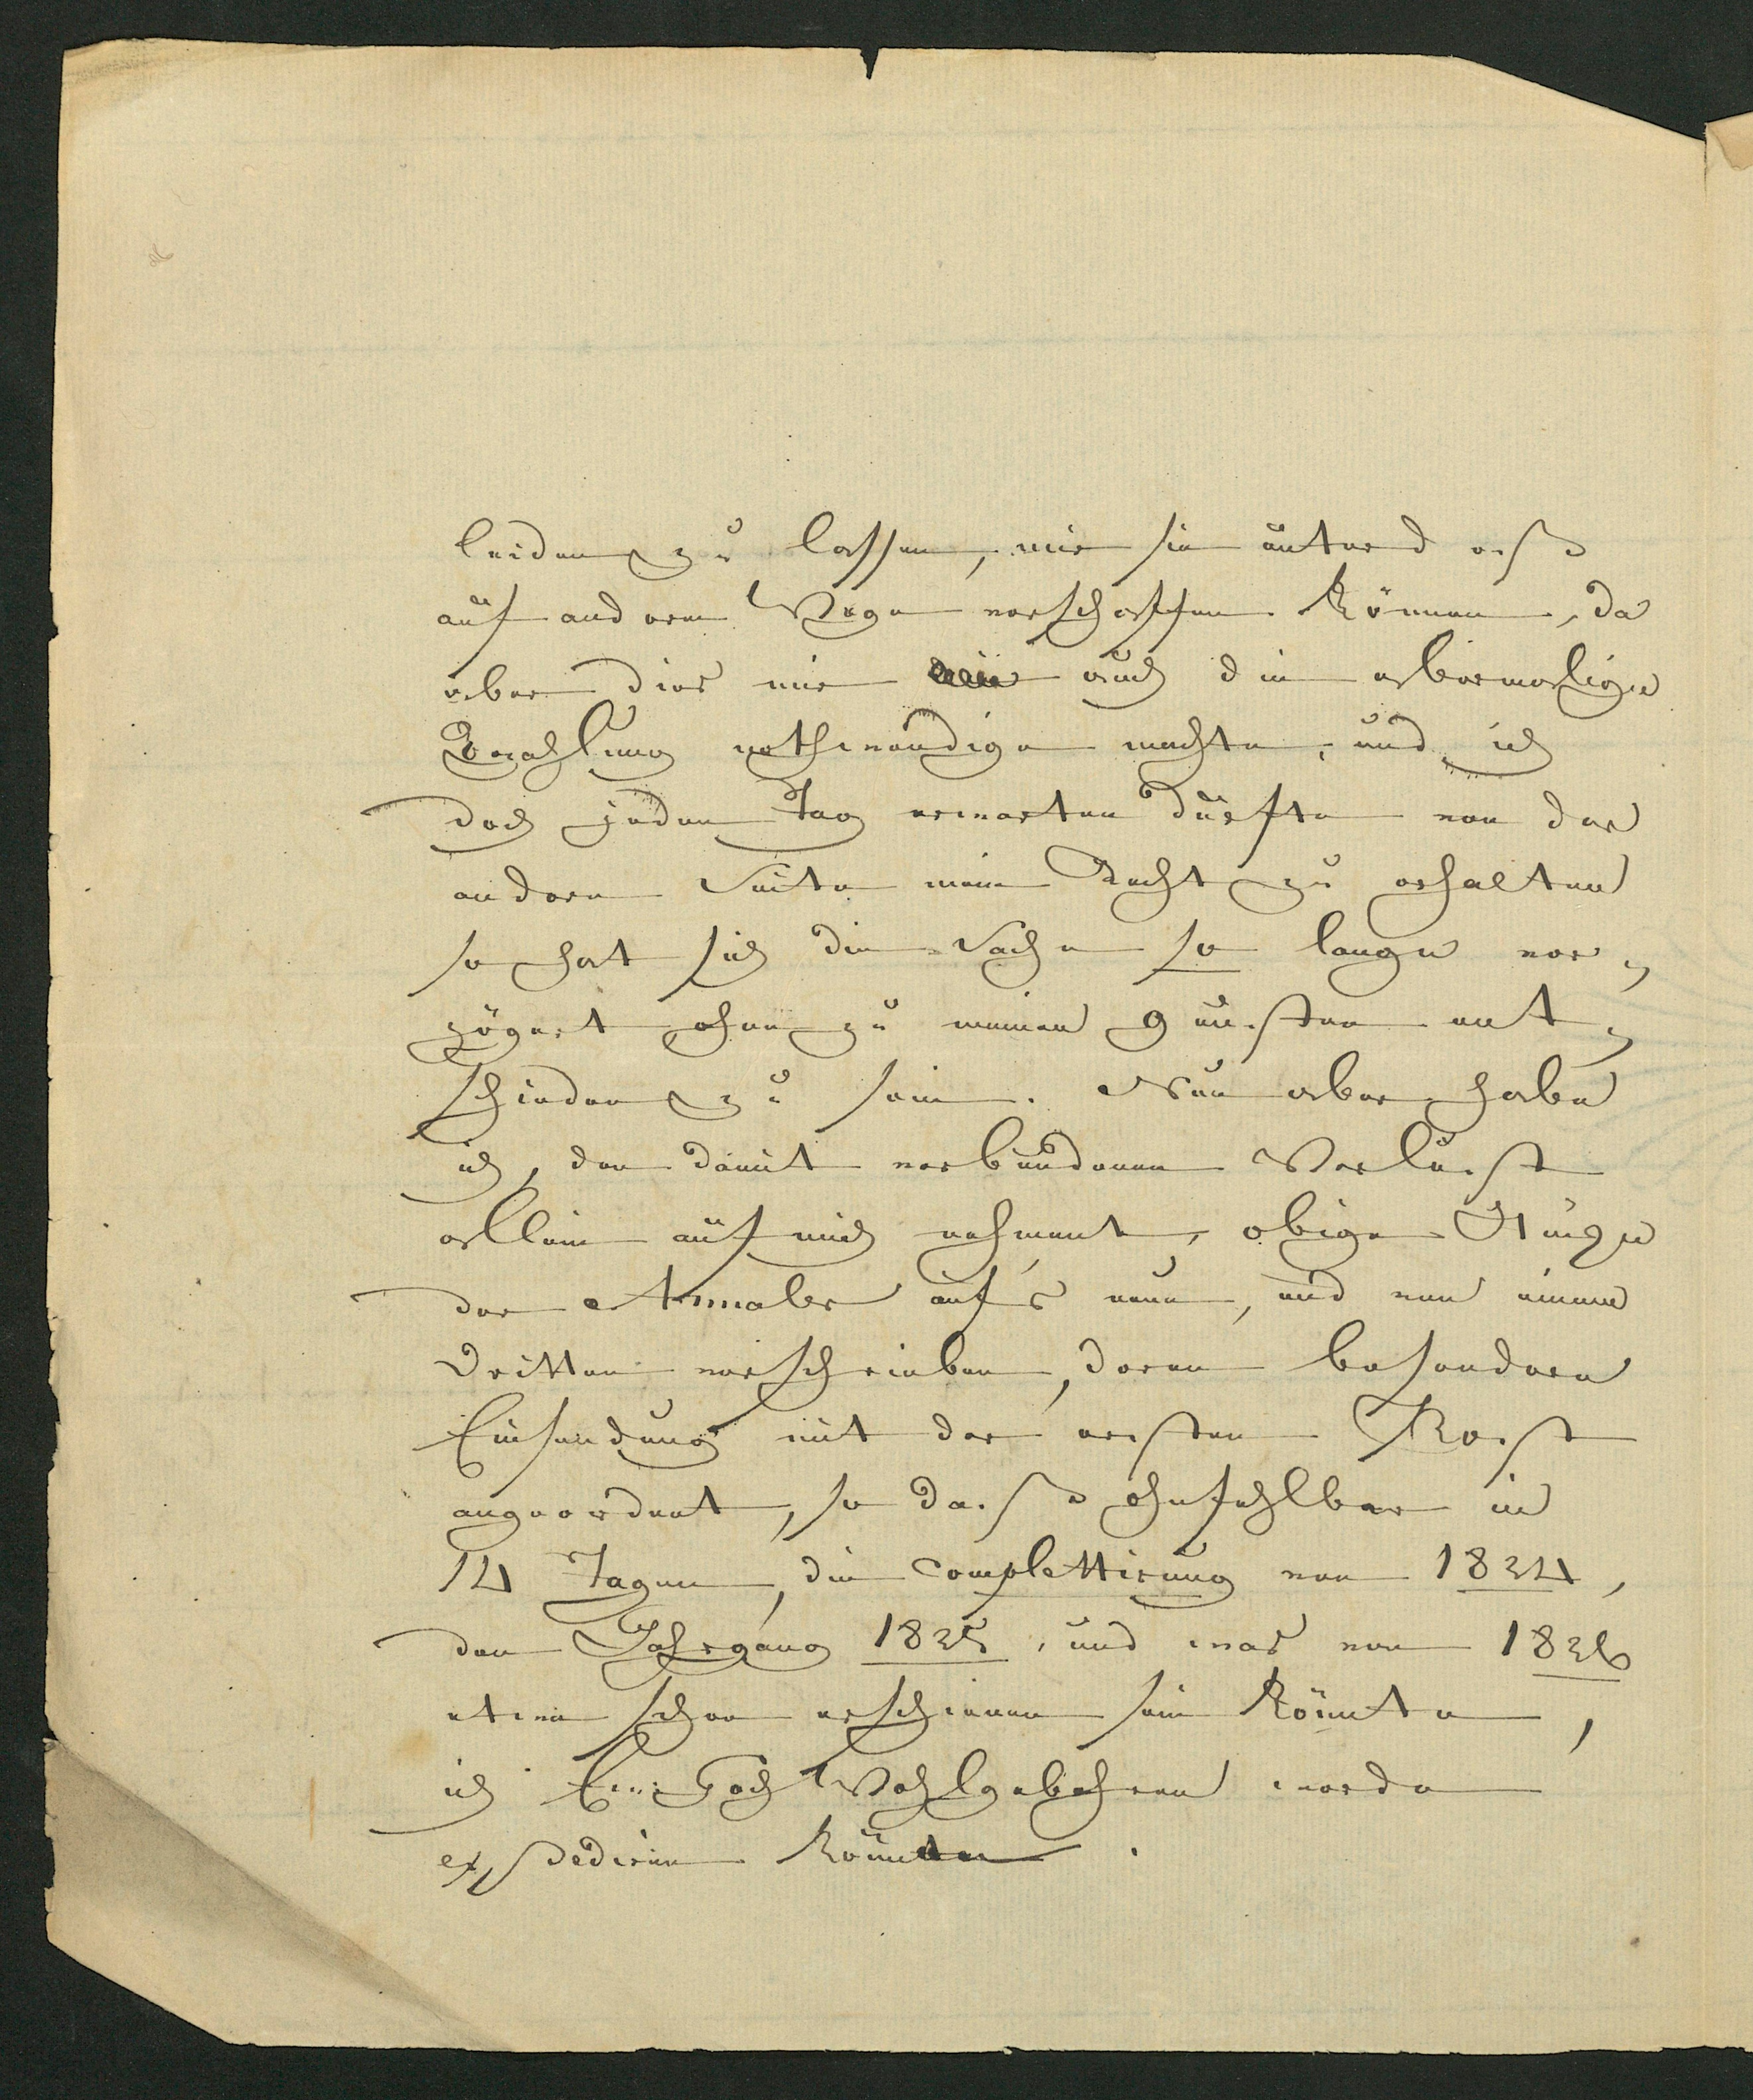 leiden zu lassen, mir sie unterdeß
auf anderm Wege verschaffen können, da
aber dies mir auch die abermalige
Bezahlung nothwendige machte, und ich
doch jeden Tag erwarten dürfte von der
andern Seite mein Recht zu erhalten
so hat sich die Sache so lange ver-
zögert ohne zu meinen gunsten ent-
schieden zu sein. Nun aber habe
ich, den damit verbundenen Verlust
allein auf mich nehment, obige Stücke
der Annalen auf's neue, und von einem
Dritten verschrieben, deren besondere
Einsendung mit der ersten Post
angeordnet, so daß ohnfehlbar in
14 Tagen, die Complettirung von 1834,
den Jahrgang 1835, und was von 1836
etwa schon erschienen sein könnte,
ich Eur. HochWohlgebohren werde
expediren können.